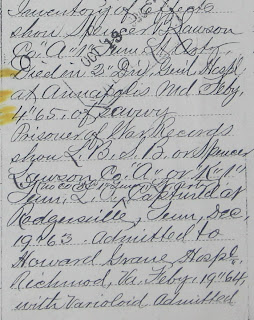 Inventory of effects
show Spencer Lawson
Co. "A" 1" Tenn. Lt. Arty.
Died in 2" Div. Genl. Hospl.
at Annapolis Md. Feby.
4" 65. of scurvy
Prisoner of War Records
show L. B. S. B. or Spencer
Lawson Co. "A" or "K" 1"
Tenn. L. A. Captured at
Rodgersville, Tenn, Dec.
19" 63. Admitted to
Howard Grove Hospl.,
Richmod, Va. Feby. 19" 64,
with Varioloid Admitted